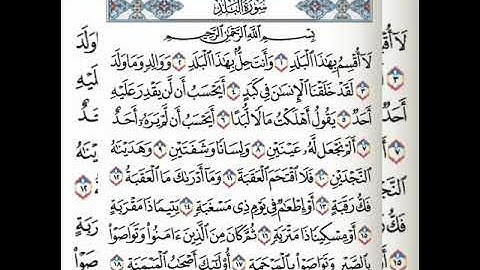 سُورَةُ البَلَدِ
بِسْمِ اللَّهِ الرَّحْمَٰنِ الرَّحِيمِ
لَا أُقْسِمُ بِهَٰذَا الْبَلَدِ ١ وَأَنتَ حِلٌّ بِهَٰذَا الْبَلَدِ ٢ وَوَالِدٍ وَمَا وَلَدَ
٣ لَقَدْ خَلَقْنَا الْإِنسَانَ فِي كَبَدٍ ٤ أَيَحْسَبُ أَن لَّن يَقْدِرَ عَلَيْهِ
أَحَدٌ ٥ يَقُولُ أَهْلَكْتُ مَالًا لُّبَدًا ٦ أَيَحْسَبُ أَن لَّمْ يَرَهُ أَحَدٌ
٧ أَلَمْ نَجْعَل لَّهُ عَيْنَيْنِ ٨ وَلِسَانًا وَشَفَتَيْنِ ٩ وَهَدَيْنَاهُ
النَّجْدَيْنِ ١٠ فَلَا اقْتَحَمَ الْعَقَبَةَ ١١ وَمَا أَدْرَاكَ مَا الْعَقَبَةُ ١٢
فَكُّ رَقَبَةٍ ١٣ أَوْ إِطْعَامٌ فِي يَوْمٍ ذِي مَسْغَبَةٍ ١٤ يَتِيمًا ذَا مَقْرَبَةٍ
١٥ أَوْ مِسْكِينًا ذَا مَتْرَبَةٍ ١٦ ثُمَّ كَانَ مِنَ الَّذِينَ آمَنُوا وَتَوَاصَوْا
بِالصَّبْرِ وَتَوَاصَوْا بِالْمَرْحَمَةِ ١٧ أُولَٰئِكَ أَصْحَابُ الْمَيْمَنَةِ ١٨